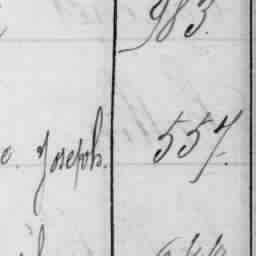 983.
o. Joseph. 557.